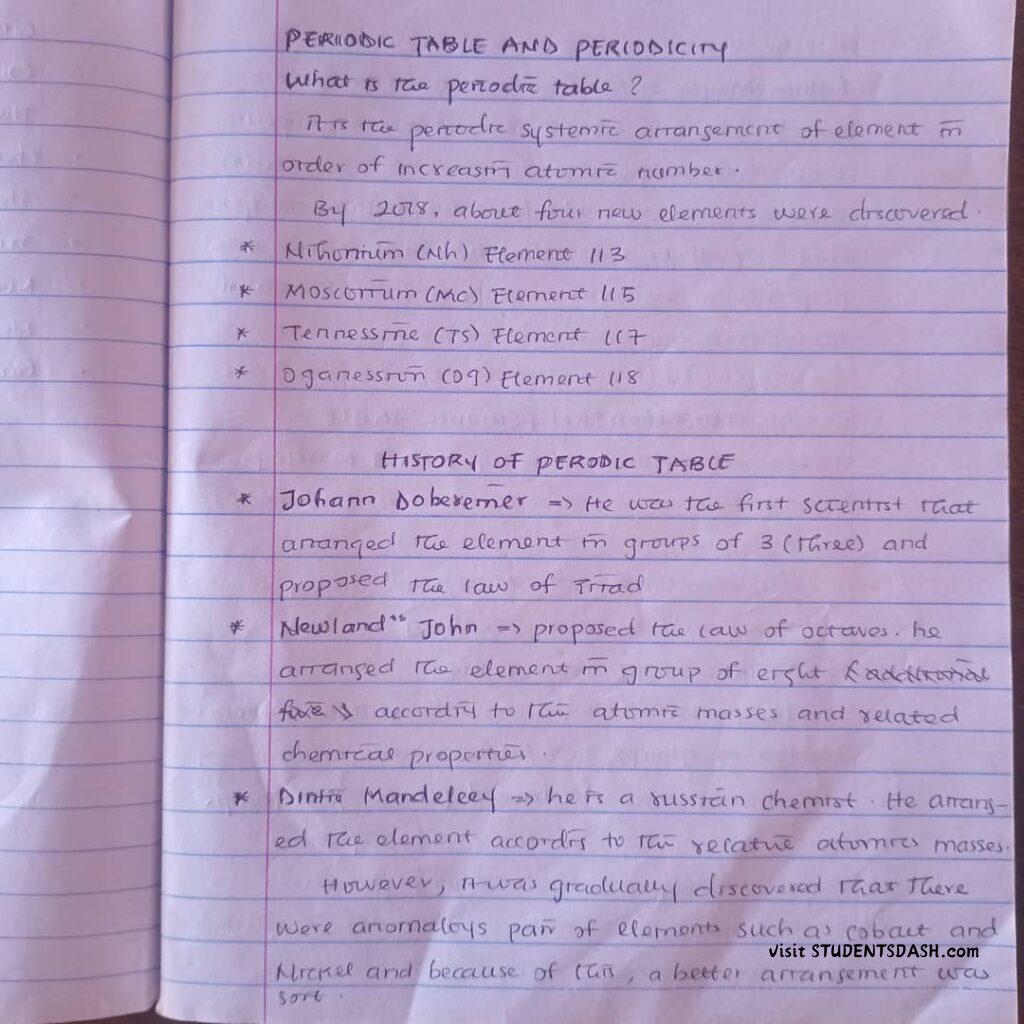 PERIIODIC TABLE AND PERIODICITY
What is the periodic table ?
It is the periodic systemic arrangement of element in
order of increasin atomic number.
By 2018, about four new elements were discovered.
* Nihonium (Nh) Element 113
* Moscorium (Mc) Element 115
* Tennessine (Ts) Element 117
* Oganession (Og) Element 118
HISTORY OF PERODIC TABLE
* Johann Dobereiner => He was the first scientist that
arranged the element in groups of 3 (three) and
proposed the law of Triad
* Newland John => proposed the law of octaves. he
arranged the element in group of eight & additional
according to the atomic masses and related
chemical properties.
* Dmitri Mandeleey => he is a russian chemist. He arrang-
ed the element accordig to the relative atomic masses.
However, it was gradually discovered that there
were anomaloys pair of elements such as cobalt and
visit STUDENTSDASH.com
Nickel and because of this, a better arrangement was
sort.